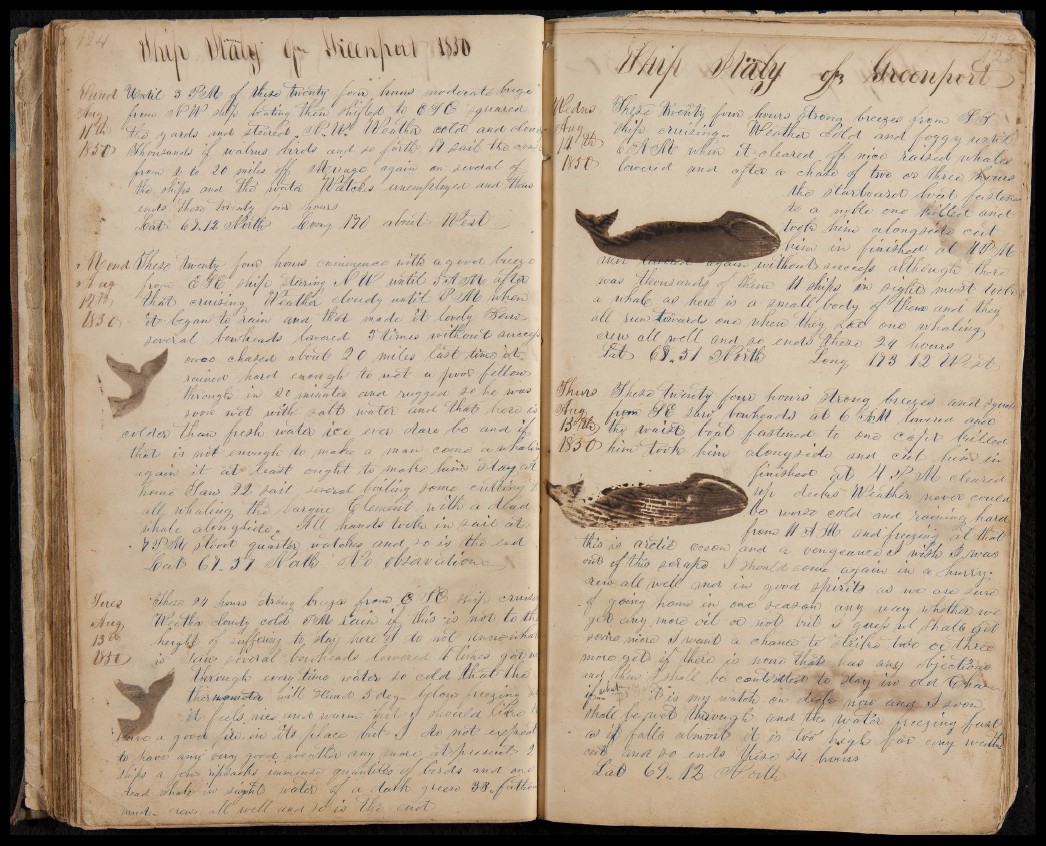 124
Ship Italy of Greenport 1850
Sund Until 3 PM of these twenty four hours moderate breeze
Aug from NW ship beating then shifted to ESE squared
11th the yards and steered NW. Weather cold and cloudy
1850 Thousands of walrus birds and so forth 11 sail the
from 2 to 20 miles off Mirage again on several of
the ships and the water Watches unemployed and thus
ends these twenty four hours
Lat 69.12 North Long 170 about West
Mond These twenty four hours commence with a good breeze
Aug from ESE ship steering NW until 5 AM after
12th that cruising Weather cloudy until PM when
1850 it began to rain and that made it lovely Saw
several bowheads lowered 3 times without success
once chased about 20 miles last time it
rained hard enough to wet a poor fellow
through in 20 minutes and rugged so he was
soon wet with salt water and that here is
colder than fresh water ice ever dare be and if
that is not enough to make a man come a whaling
again it at least ought to make him stay at
home Saw 22 sail several boiling some cutting
all whaling the barque Clement with a dead
whale alongside. All hands took in sail at
7 PM stood quarter watches and so is the end
Lat 69.37 North No observations
Tues These 24 hours strong breeze from ESE ship cruising
Aug Weather cloudy cold PM rain if this is not to the
13th height of suffering to stay here I do not know what
1850 is Saw several bowheads lowered 4 times got
through every time water so cold that the
thermometer will stand 5 deg below freezing
it feels nice and warm but I should like
have a good fire in its place but I do not expect
to have any very good weather any more at present 2
ships a few immense quantities of birds and one
dead whale in sight water of a dark green 38 fathom
mud. crew all well and so is the end
125
Ship Italy of Greenport
Wedns These twenty four hours strong breezes from
Aug ship cruising. Weather cold and foggy until
14th 6 AM when it cleared off nice raised whales
1850 lowered and after a chase of two or three hours
the starboard boat fastened
to a noble one killed and
took him alongside cut
him in finished at 4 PM
and lowered again without success although there
was thousands of them 11 ships in sight must look
a whale as here is a small body of them and they
all run towards one when they see one whaling
crew all well and so ends these 24 hours
Lat 68.51 North Long 173 12 West
Thurs These twenty four hours strong breezes and squally
Aug from SE saw bowheads at 6 AM lowered and
15th the waist boat fastened to one killed
1850 him took him alongside and cut him in
finished at 4 PM cleared
up decks Weather never could
be worse cold and raining hard
from 11 AM and freezing at that
this is arctic ocean and a vengeance I wish I was
out of this scrape I should come again in a hurry.
crew all well and in good spirits as we are sure
of going home in one season any way whether we
get any more oil or not but I guess we shall get
some more I want a chance to strike two or three
more yet if there is none that has any objections
and then I shall be contented to stay in old
if what it is my watch on deck now and I soon
shall be wet through and the water freezing fast
as it falls almost it is too high for any
cut and so ends these 24 hours
Lat 69.12 North